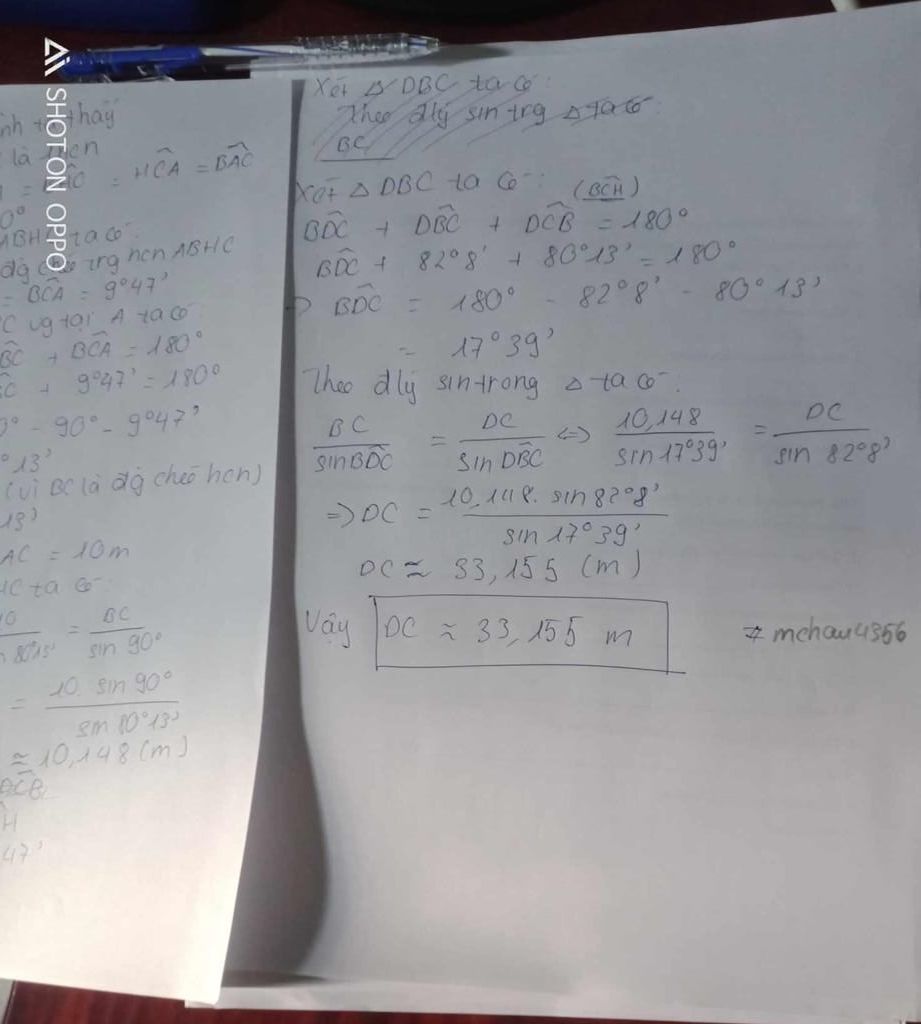 SHOT ON OPPO
là hcn
= HĈA = BÂC
ABHC ta có:
đg chéo trg hcn ABHC
= BĈA = 9°47'
C vg tại A ta có
+ BĈA = 180°
+ 9°47' = 180°
- 90° - 9°47'
°13'
(vì BC là đg chéo hcn)
13'
AC = 10m
HC ta có
= BC / sin 90°
= 10. sin 90° / sin 80°13'
≈ 10,148 (m)
H
47'
Xét Δ DBC ta có:
Theo đlý sin trg Δ ta có
BC
Xét Δ DBC ta có: (BĈH)
BD̂C + DB̂C + DĈB = 180°
BD̂C + 82°8' + 80°13' = 180°
=> BD̂C = 180° - 82°8' - 80°13'
= 17°39'
Theo đlý sin trong Δ ta có:
BC / sinBD̂C = DC / sin DB̂C <=> 10,148 / sin 17°39' = DC / sin 82°8'
=> DC = 10,148. sin 82°8' / sin 17°39'
DC ≈ 33,155 (m)
Vậy DC ≈ 33,155 m
# mchau4356